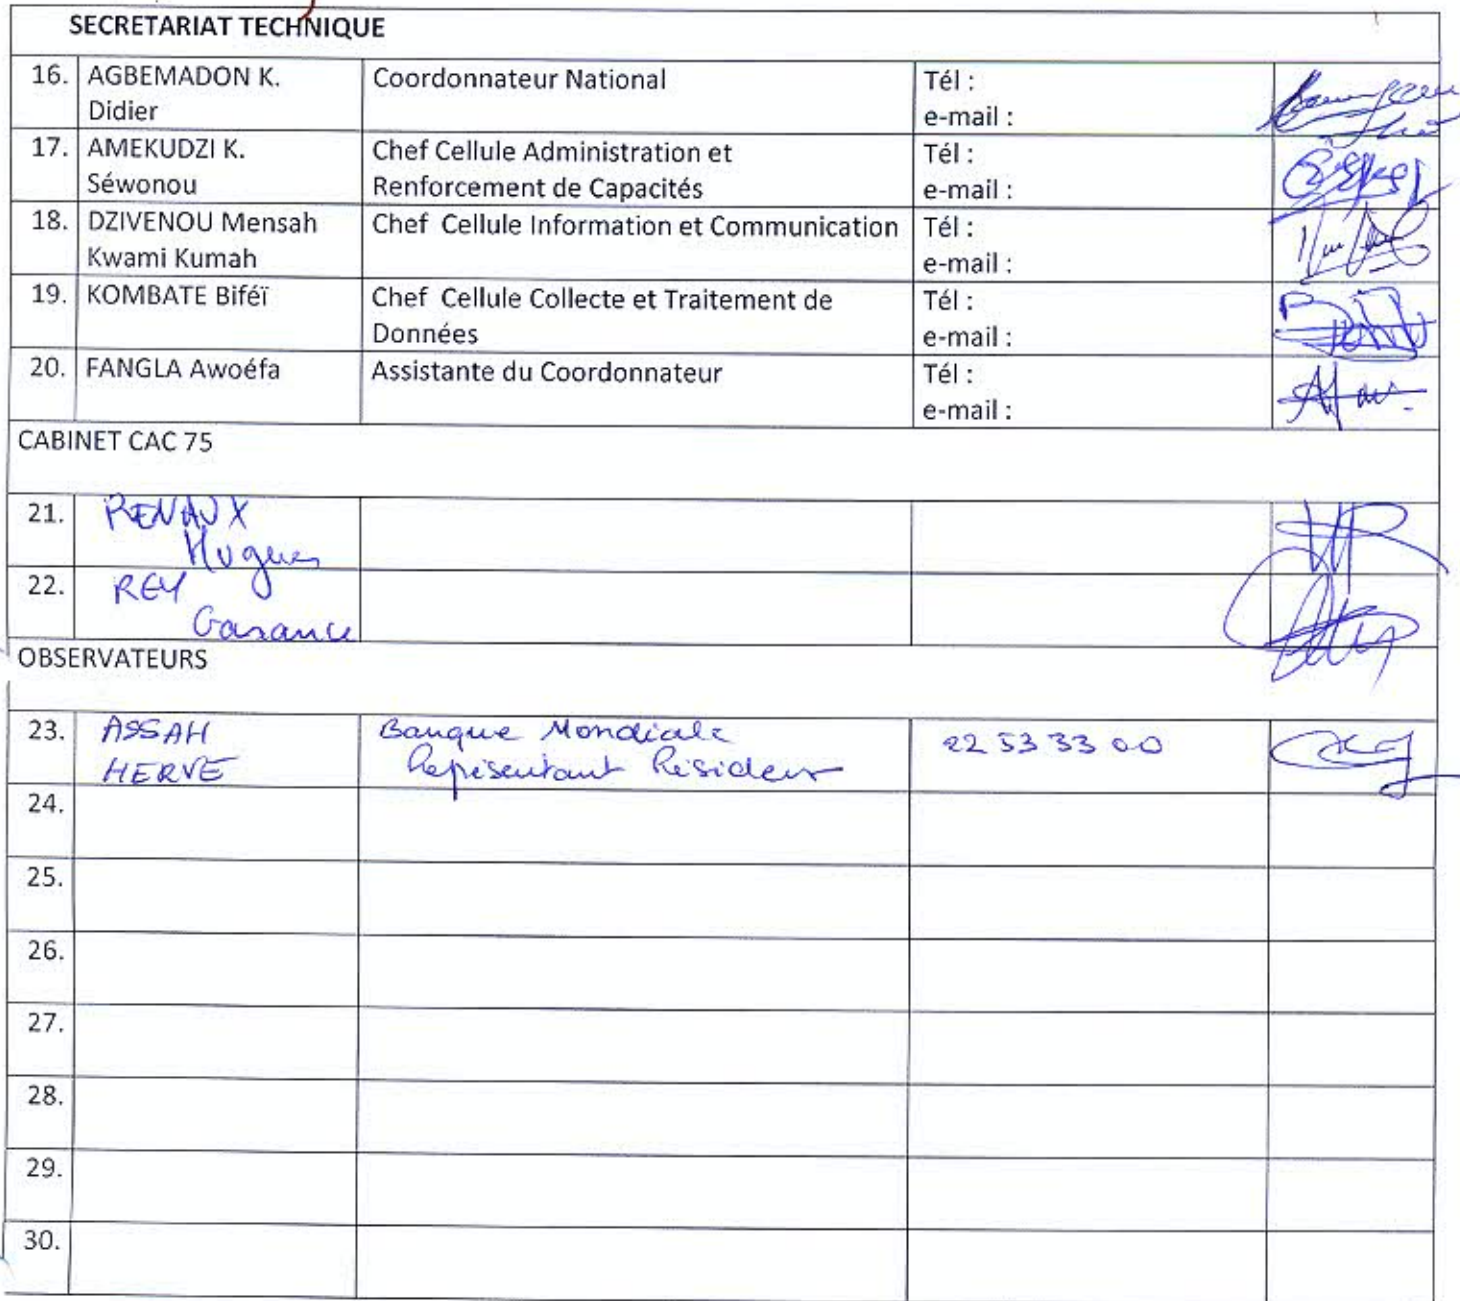 SECRETARIAT TECHNIQUE
16. AGBEMADON K. Didier Coordonnateur National Tél : e-mail :
17. AMEKUDZI K. Séwonou Chef Cellule Administration et Renforcement de Capacités Tél : e-mail :
18. DZIVENOU Mensah Kwami Kumah Chef Cellule Information et Communication Tél : e-mail :
19. KOMBATE Biféï Chef Cellule Collecte et Traitement de Données Tél : e-mail :
20. FANGLA Awoéfa Assistante du Coordonnateur Tél : e-mail :
CABINET CAC 75
21. RENAUX Hugues
22. REY Garance
OBSERVATEURS
23. ASSAH HERVE Banque Mondiale Représentant Résident 22 53 33 00
24.
25.
26.
27.
28.
29.
30.